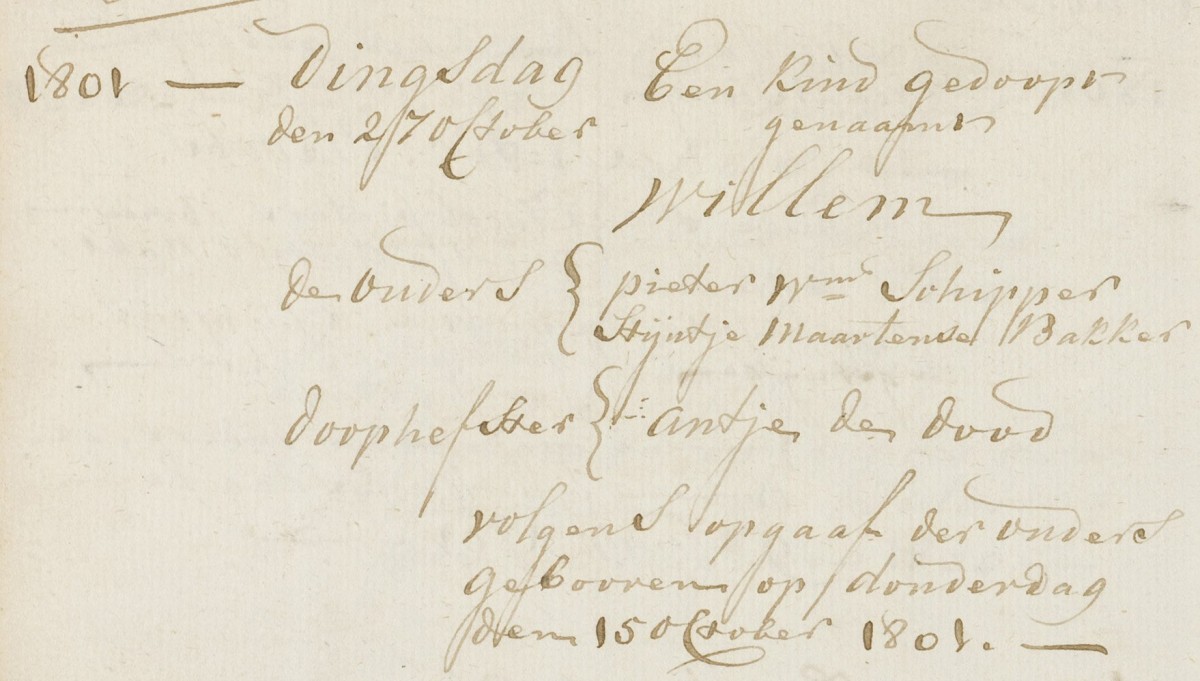 1801 — Dingsdag Een kind gedoopt
den 27 October genaamt
Willem
de ouders { pieter Wm Schipper
Stijntje Maartense Bakker
doophefster { antje de dood
volgens opgaaf der ouders
gebooren op donderdag
den 15 October 1801. —